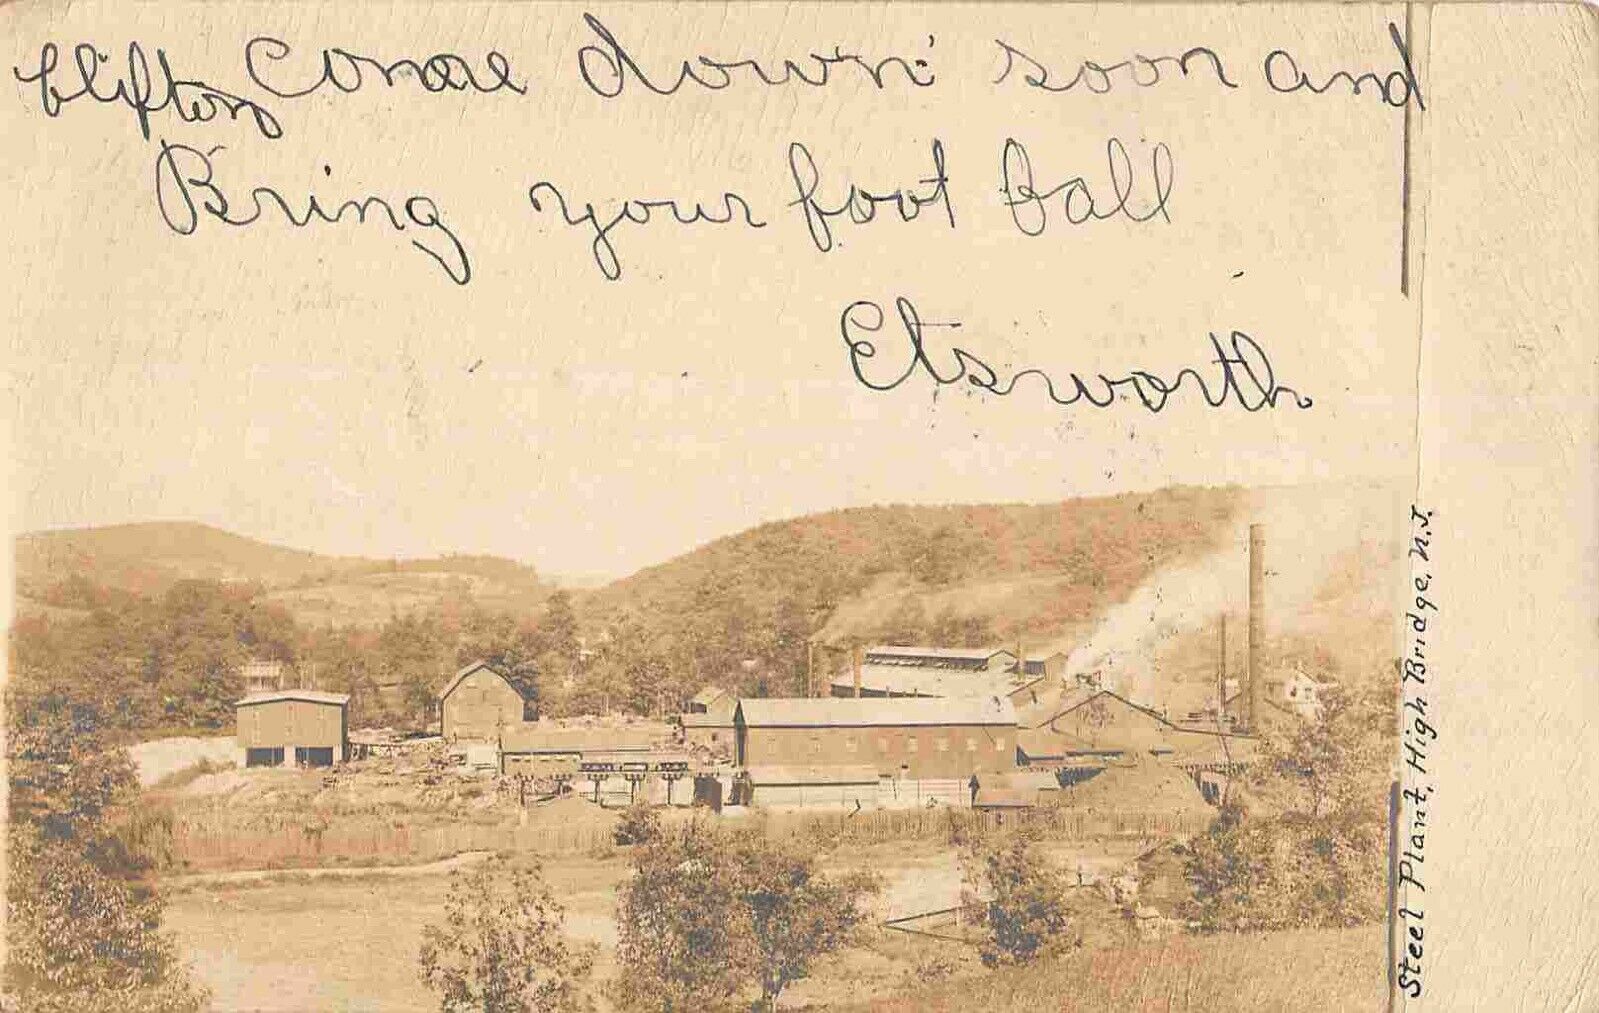 Clifton Come down soon and
Bring your foot ball
Etsworth
Steel Plant, High Bridge, N.J.